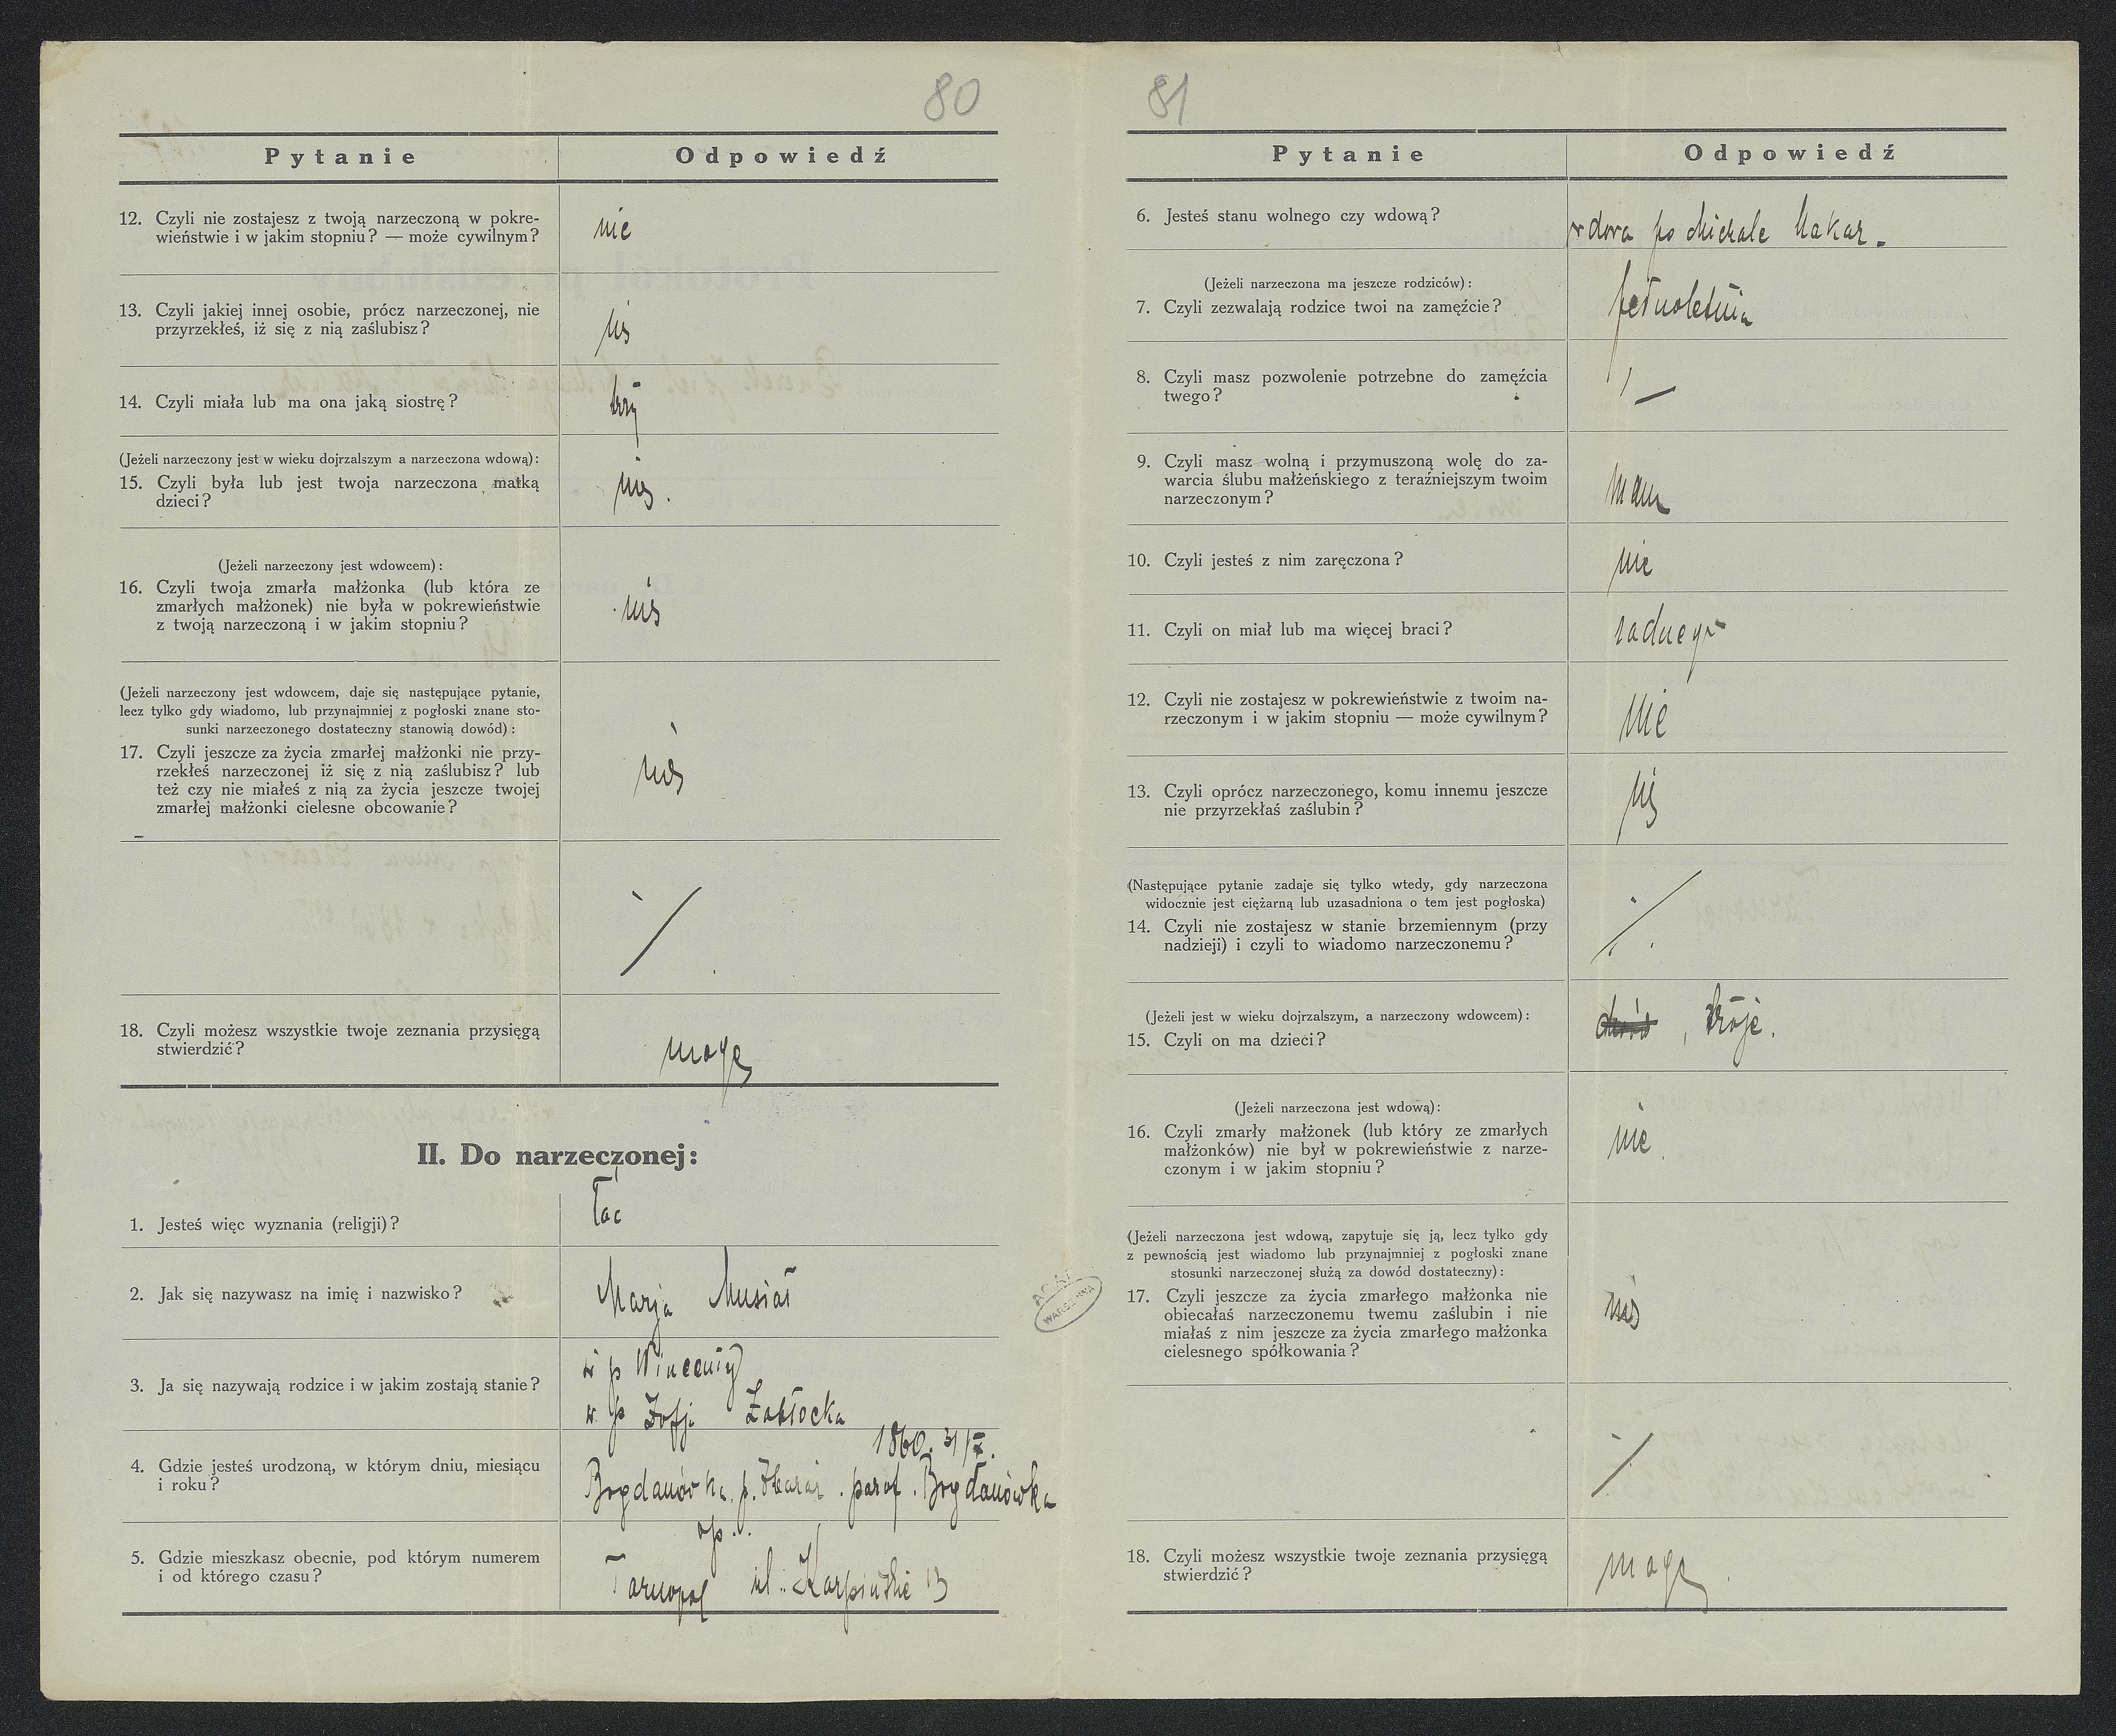 80
Pytanie Odpowiedź
12. Czyli nie zostajesz z twoją narzeczoną w pokre-
wieństwie i w jakim stopniu? — może cywilnym?
nie
13. Czyli jakiej innej osobie, prócz narzeczonej, nie
przyrzekłeś, iż się z nią zaślubisz?
nie
14. Czyli miała lub ma ona jaką siostrę?
trzy
(Jeżeli narzeczony jest w wieku dojrzalszym a narzeczona wdową):
15. Czyli była lub jest twoja narzeczona matką
dzieci?
nie.
(Jeżeli narzeczony jest wdowcem):
16. Czyli twoja zmarła małżonka (lub która ze
zmarłych małżonek) nie była w pokrewieństwie
z twoją narzeczoną i w jakim stopniu?
nie
(Jeżeli narzeczony jest wdowcem, daje się następujące pytanie,
lecz tylko gdy wiadomo, lub przynajmniej z pogłoski znane sto-
sunki narzeczonego dostateczny stanowią dowód):
17. Czyli jeszcze za życia zmarłej małżonki nie przy-
rzekłeś narzeczonej iż się z nią zaślubisz? lub
też czy nie miałeś z nią za życia jeszcze twojej
zmarłej małżonki cielesne obcowanie?
nie
18. Czyli możesz wszystkie twoje zeznania przysięgą
stwierdzić?
mogę
II. Do narzeczonej:
1. Jesteś więc wyznania (religji)?
łac
2. Jak się nazywasz na imię i nazwisko?
Marja Musiał
3. Ja się nazywają rodzice i w jakim zostają stanie?
ś p Wincenty
ś p Zofja Zabłocka
4. Gdzie jesteś urodzoną, w którym dniu, miesiącu
i roku?
1860.
Bogdanówka. p. Zbaraż. paraf. Bogdanówka
5. Gdzie mieszkasz obecnie, pod którym numerem
i od którego czasu?
Tarnopol ul. 13
WARSZAWA
81
Pytanie Odpowiedź
6. Jesteś stanu wolnego czy wdową?
wdowa po Michale Makar.
(Jeżeli narzeczona ma jeszcze rodziców):
7. Czyli zezwalają rodzice twoi na zamęźcie?
pełnoletnia
8. Czyli masz pozwolenie potrzebne do zamęźcia
twego?
9. Czyli masz wolną i przymuszoną wolę do za-
warcia ślubu małżeńskiego z teraźniejszym twoim
narzeczonym?
mam
10. Czyli jesteś z nim zaręczona?
nie
11. Czyli on miał lub ma więcej braci?
żadnego
12. Czyli nie zostajesz w pokrewieństwie z twoim na-
rzeczonym i w jakim stopniu — może cywilnym?
nie
13. Czyli oprócz narzeczonego, komu innemu jeszcze
nie przyrzekłaś zaślubin?
nie
(Następujące pytanie zadaje się tylko wtedy, gdy narzeczona
widocznie jest ciężarną lub uzasadniona o tem jest pogłoska)
14. Czyli nie zostajesz w stanie brzemiennym (przy
nadzieji) i czyli to wiadomo narzeczonemu?
(Jeżeli jest w wieku dojrzalszym, a narzeczony wdowcem):
15. Czyli on ma dzieci?
troje.
(Jeżeli narzeczona jest wdową):
16. Czyli zmarły małżonek (lub który ze zmarłych
małżonków) nie był w pokrewieństwie z narze-
czonym i w jakim stopniu?
nie
(Jeżeli narzeczona jest wdową, zapytuje się ją, lecz tylko gdy
z pewnością jest wiadomo lub przynajmniej z pogłoski znane
stosunki narzeczonej służą za dowód dostateczny):
17. Czyli jeszcze za życia zmarłego małżonka nie
obiecałaś narzeczonemu twemu zaślubin i nie
miałaś z nim jeszcze za życia zmarłego małżonka
cielesnego spółkowania?
nie
18. Czyli możesz wszystkie twoje zeznania przysięgą
stwierdzić?
mogę